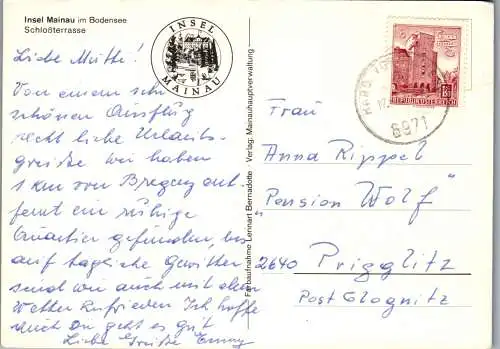 Insel Mainau im Bodensee
Schloßterrasse
INSEL
MAINAU
Liebe Mutti!
Von einem sehr
schönen Ausflug
recht liebe Urlaubs-
grüße wir haben
1 km von Bregenz ent-
fernt ein ruhige
Quartier gefunden, bis
auf tägliche Gewitter
sind wir auch mit dem
Wetter zufrieden Ich hoffe
auch Du geht es gut
Liebe Grüße Emmy
Farbaufnahme Lennart Bernadotte Verlag: Mainauhauptverwaltung
REPUBLIK ÖSTERREICH
HARD
6971
Frau
Anna Rippel
"Pension Wolf"
2640 Prigglitz
Post Glognitz